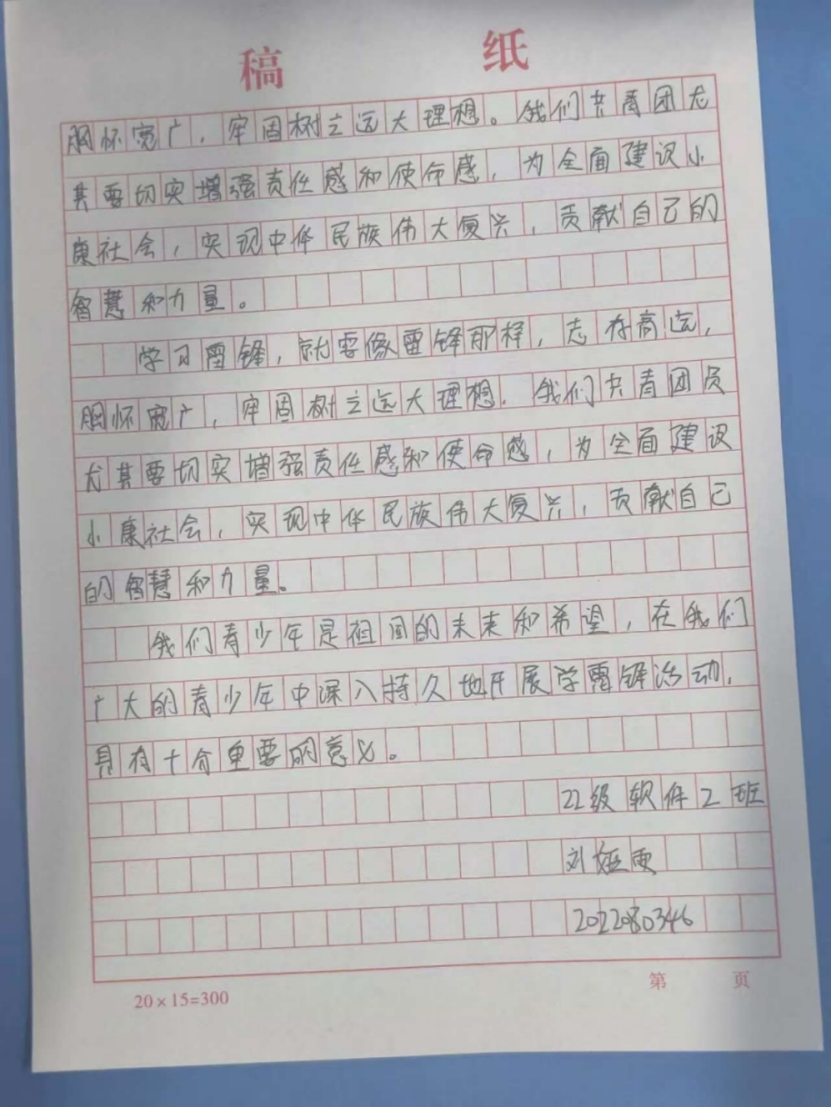 稿 纸
胸怀宽广，牢固树立远大理想。我们共青团尤
其要切实增强责任感和使命感，为全面建设小
康社会，实现中华民族伟大复兴，贡献自己的
智慧和力量。
学习雷锋，就要像雷锋那样，志存高远，
胸怀宽广，牢固树立远大理想．我们共青团员
尤其要切实增强责任感和使命感，为全面建设
小康社会，实现中华民族伟大复兴，贡献自己
的智慧和力量。
我们青少年是祖国的未来和希望，在我们
广大的青少年中深入持久地开展学雷锋活动，
具有十分重要的意义。
22级软件2班
刘娅
202280346
20×15=300
第 页